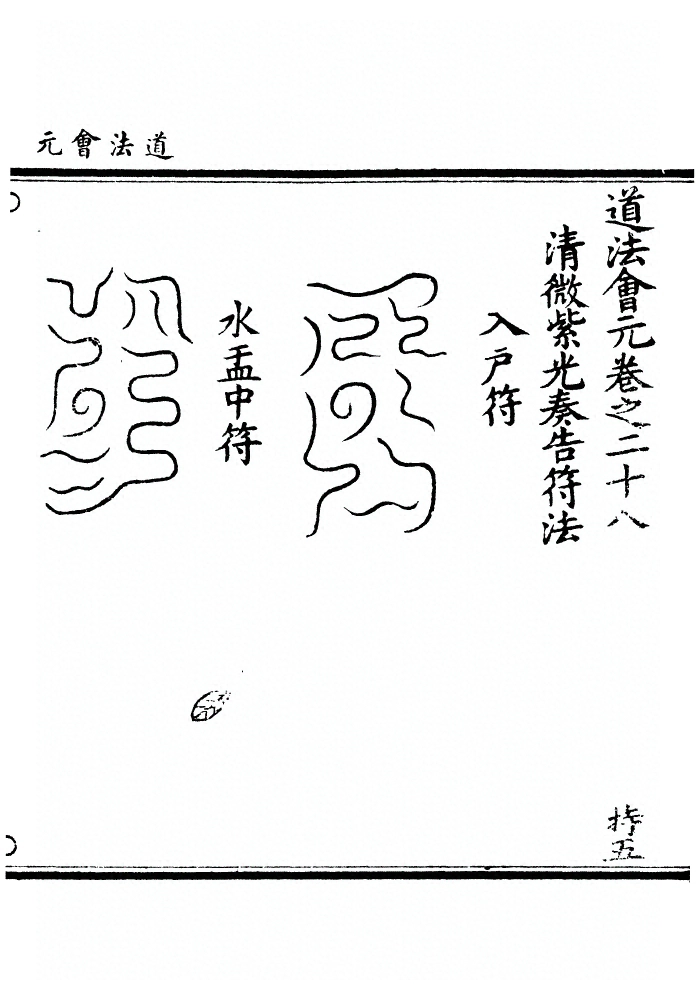 道法會元
道法會元卷之二十八
持五
清微紫光奏告符法
入戶符
水盂中符